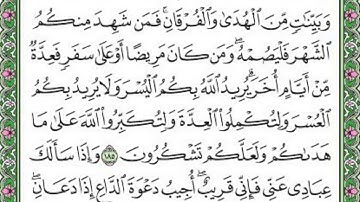 وَبَيِّنَٰتٍ مِّنَ ٱلْهُدَىٰ وَٱلْفُرْقَانِ ۚ فَمَن شَهِدَ مِنكُمُ
ٱلشَّهْرَ فَلْيَصُمْهُ ۖ وَمَن كَانَ مَرِيضًا أَوْ عَلَىٰ سَفَرٍ فَعِدَّةٌ
مِّنْ أَيَّامٍ أُخَرَ ۗ يُرِيدُ ٱللَّهُ بِكُمُ ٱلْيُسْرَ وَلَا يُرِيدُ بِكُمُ
ٱلْعُسْرَ وَلِتُكْمِلُوا۟ ٱلْعِدَّةَ وَلِتُكَبِّرُوا۟ ٱللَّهَ عَلَىٰ مَا
هَدَىٰكُمْ وَلَعَلَّكُمْ تَشْكُرُونَ ١٨٥ وَإِذَا سَأَلَكَ
عِبَادِى عَنِّى فَإِنِّى قَرِيبٌ ۖ أُجِيبُ دَعْوَةَ ٱلدَّاعِ إِذَا دَعَانِ ۖ